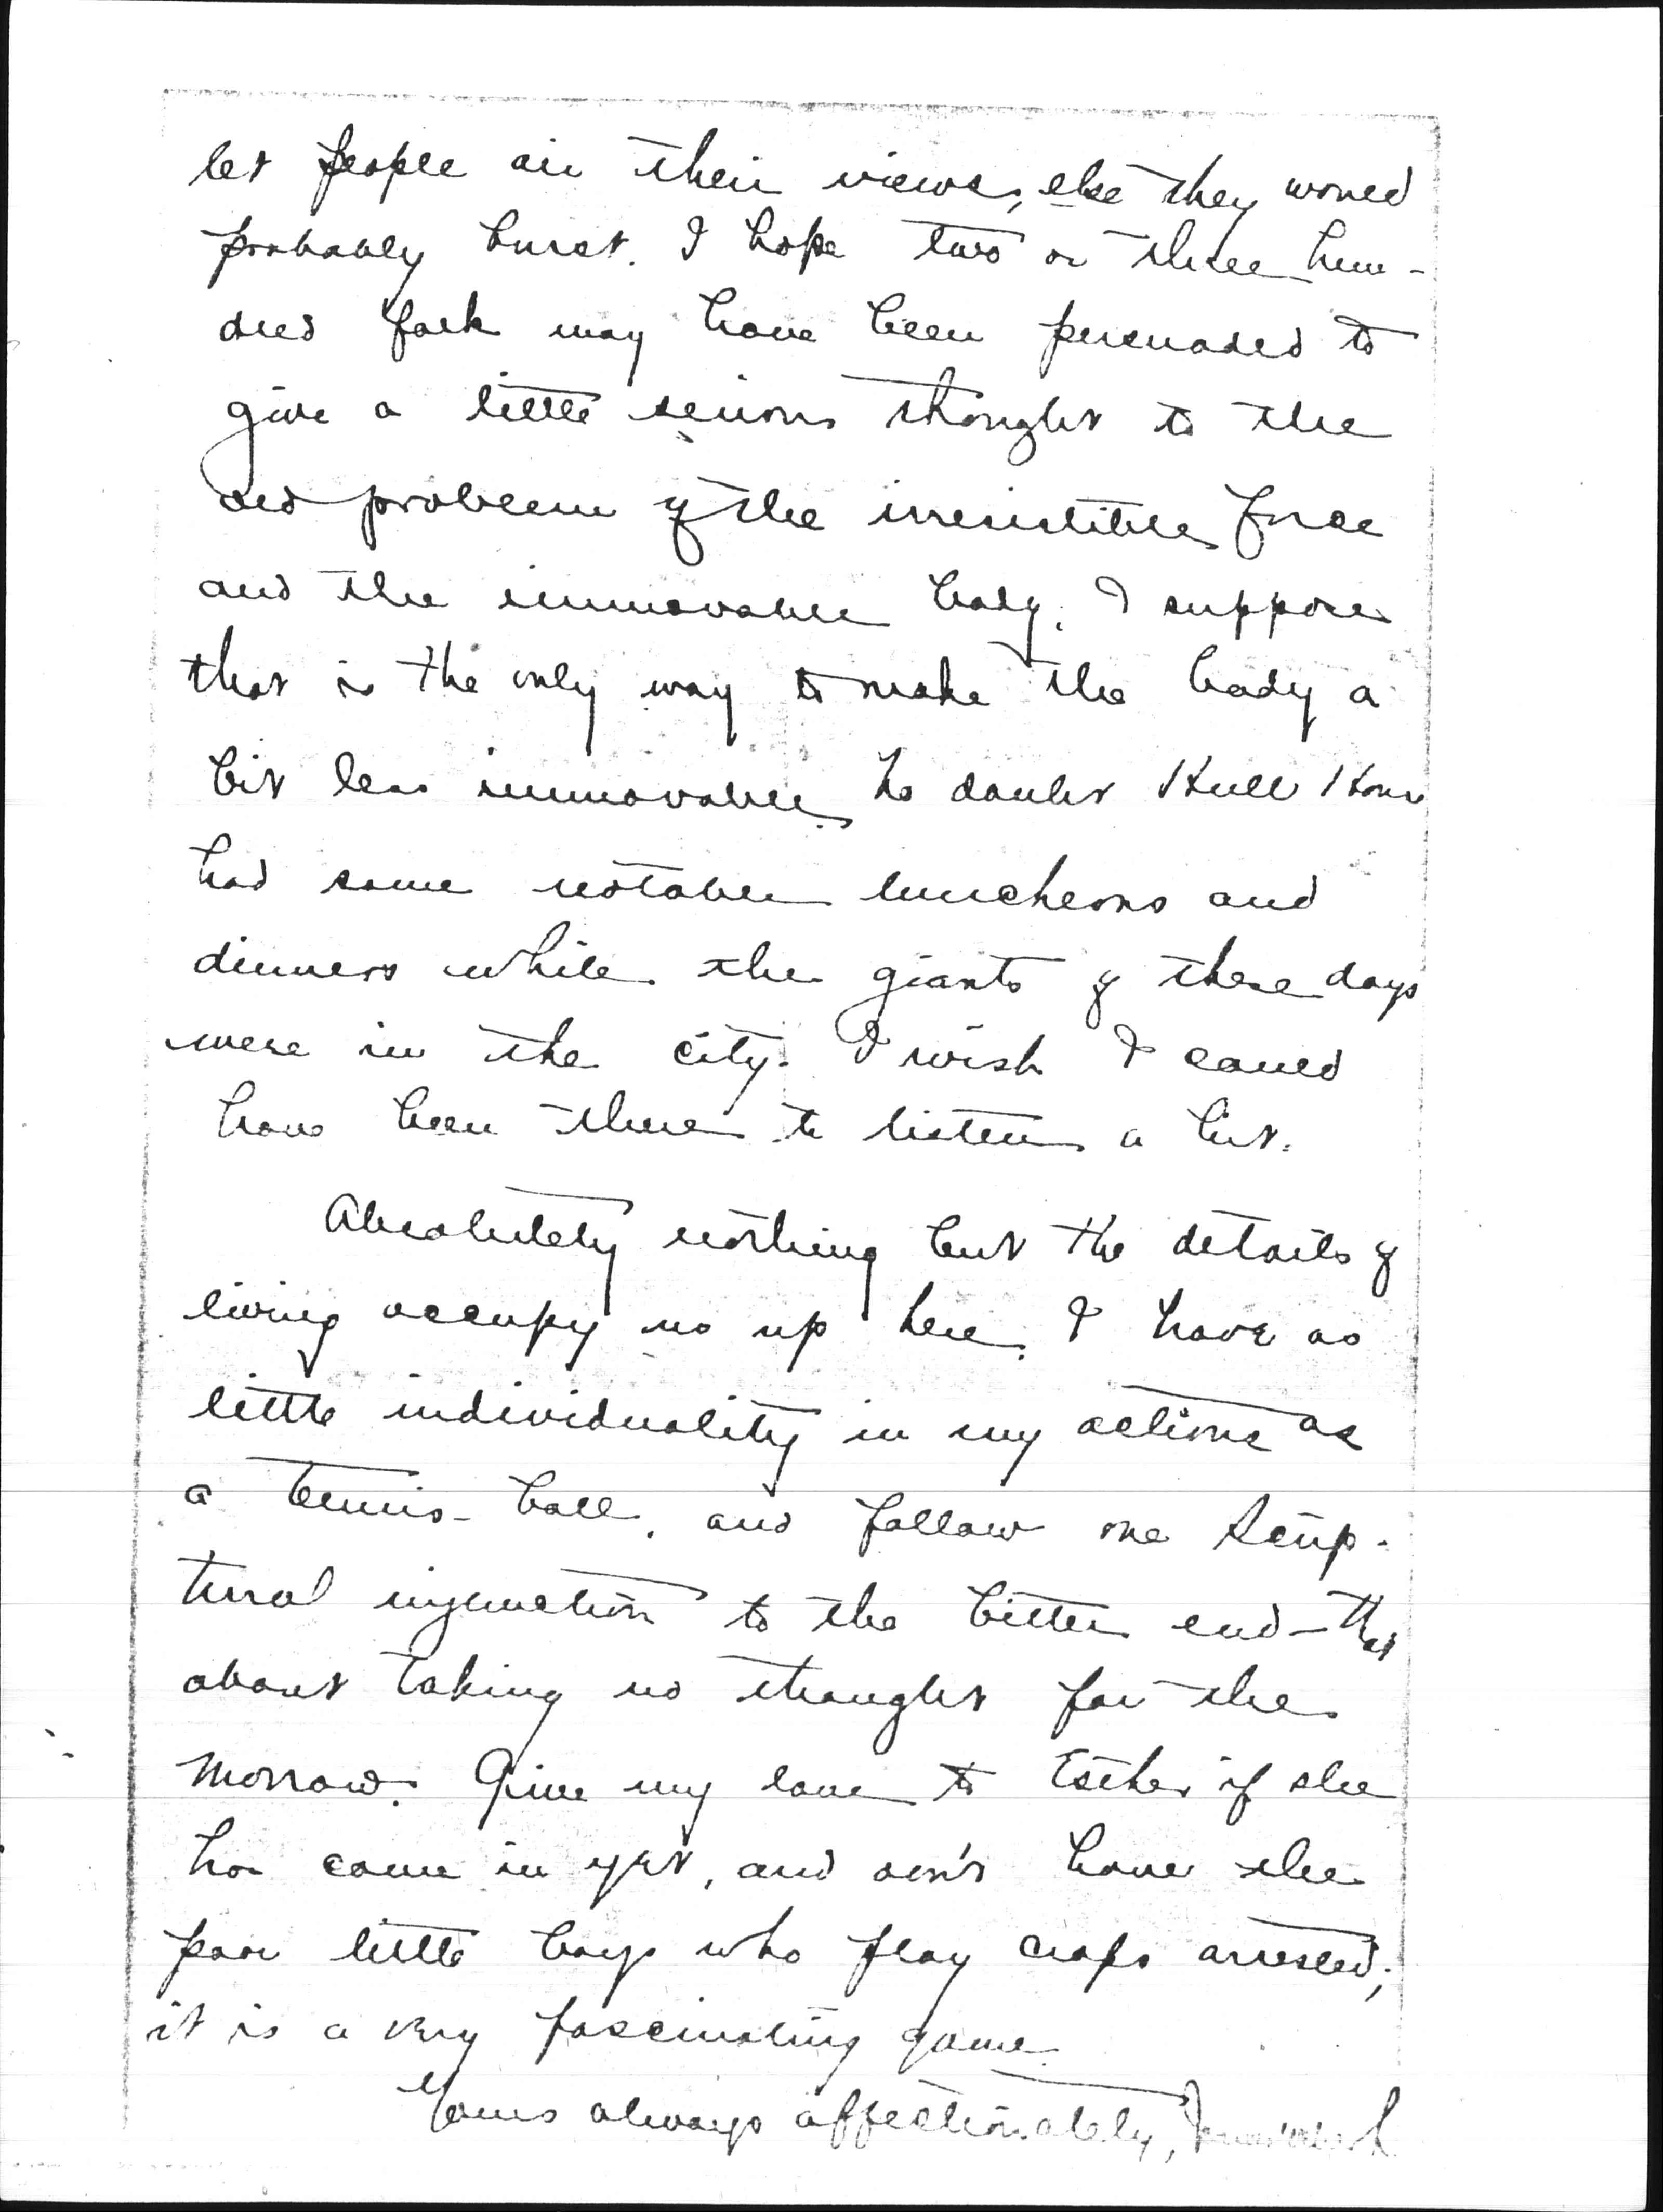 let people air their views, else they would
probably burst. I hope two or three hun-
dred folk may have been persuaded to
give a little serious thought to the
old problem of the irresistible force
and the immovable body. I suppose
that is the only way to make the body a
bit less immovable. No doubt Hull House
had some notable luncheons and
dinners while the giants of these days
were in the city. I wish I could
have been there to listen a bit.
Absolutely nothing but the details of
living occupy us up here. I have as
little individuality in my actions as
a tennis-ball, and follow one Scrip-
tural injunction to the bitter end—that
about taking no thought for the
morrow. Give my love to Esther if she
has come in yet, and don't have the
poor little boys who play craps arrested;
it is a very fascinating game.
Yours always affectionately,